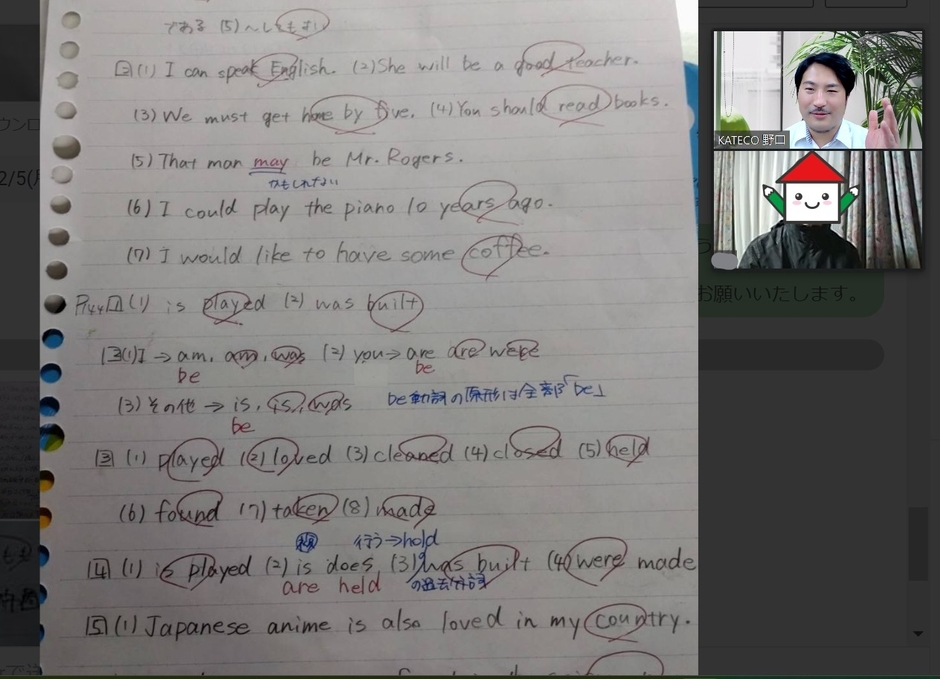 である (5)～してもよい
2(1) I can speak English. (2) She will be a good teacher.
(3) We must get home by five. (4) You should read books.
(5) That man may be Mr. Rogers.
かもしれない
(6) I could play the piano 10 years ago.
(7) I would like to have some coffee.
P144 1 (1) is played (2) was built
2(1) I → am, am, was (2) you → are are were
be be
(3) その他 → is, is, was be動詞の原形は全部「be」
be
3 (1) played (2) loved (3) cleaned (4) closed (5) held
(6) found (7) taken (8) made
行う→hold
4 (1) is played (2) is does (3) was built (4) were made
are held の過去分詞
5 (1) Japanese anime is also loved in my country.
KATECO 野口
お願いいたします。
2/5(